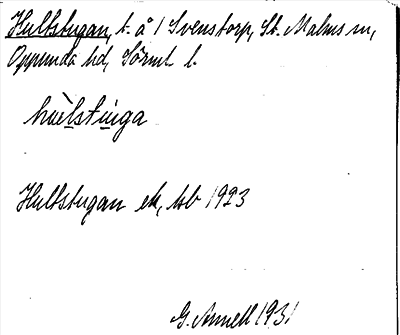 Hultstugan, t. å 1 Svenstorp, St. Malms sn,
Oppunda hd, Södml. l.
huèlstinga
Hultstugan ek, hsb 1923
G. Annell 1931